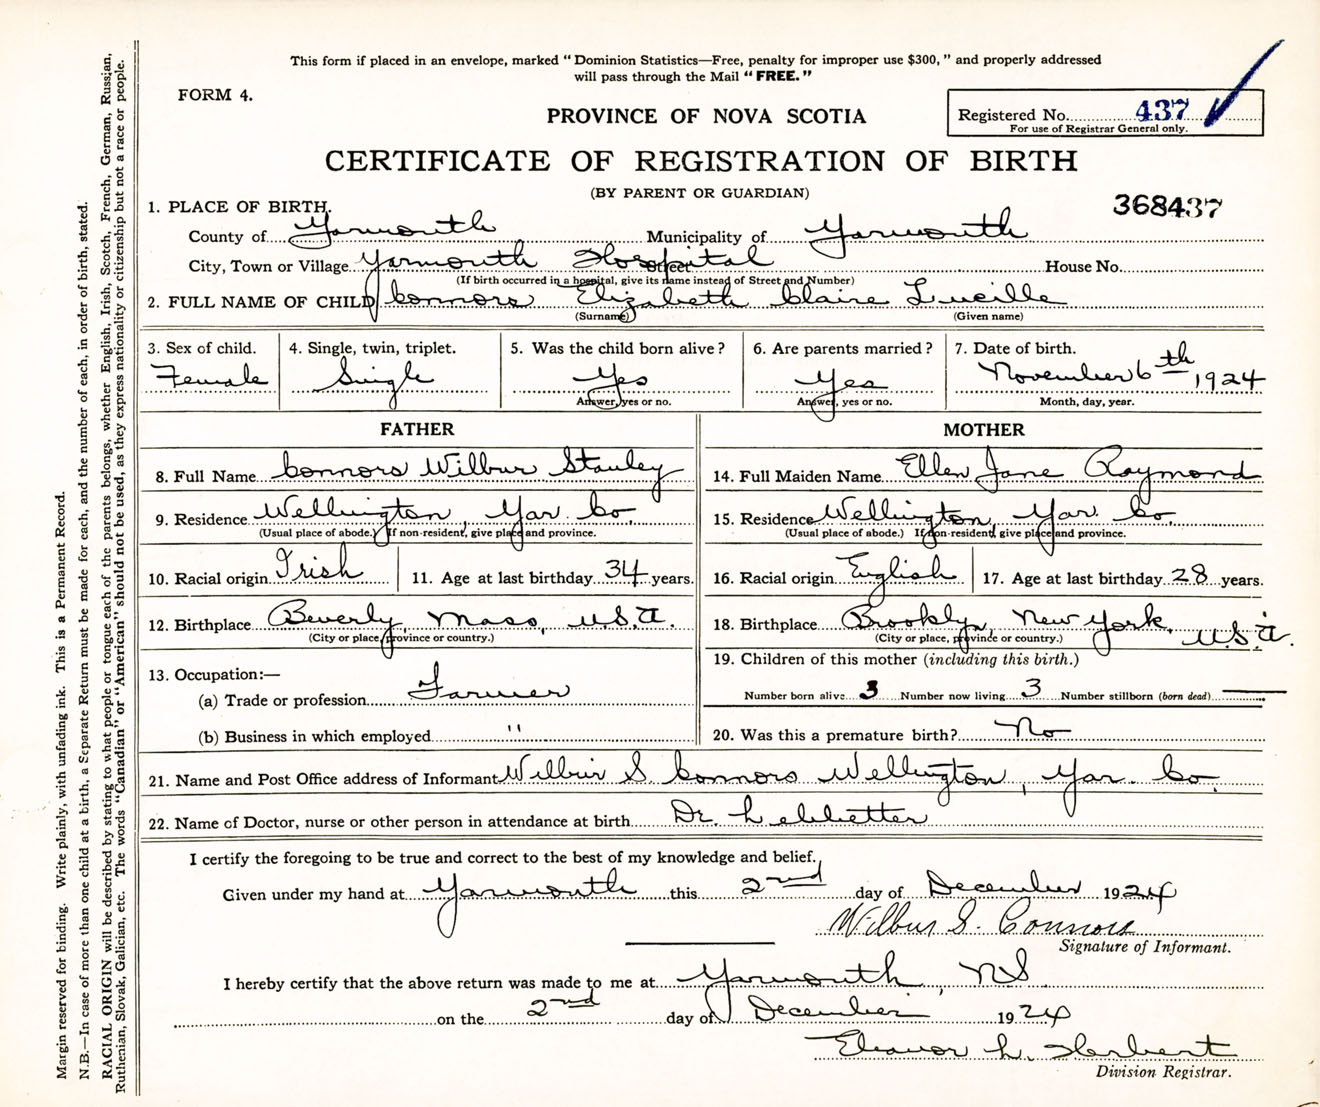 This form if placed in an envelope, marked “ Dominion Statistics—Free, penalty for improper use $300, ” and properly addressed
will pass through the Mail “ FREE. ”
FORM 4.
PROVINCE OF NOVA SCOTIA
Registered No. 437
For use of Registrar General only.
CERTIFICATE OF REGISTRATION OF BIRTH
(BY PARENT OR GUARDIAN)
368437
1. PLACE OF BIRTH.
County of Yarmouth Municipality of Yarmouth
City, Town or Village Yarmouth Hospital Street House No.
(If birth occurred in a hospital, give its name instead of Street and Number)
2. FULL NAME OF CHILD Connors Elizabeth Claire Lucille
(Surname) (Given name)
3. Sex of child. 4. Single, twin, triplet. 5. Was the child born alive? 6. Are parents married? 7. Date of birth.
Female Single Yes Yes November 6th 1924
Answer, yes or no. Answer, yes or no. Month, day, year.
FATHER
8. Full Name Connors Wilbur Stanley
9. Residence Wellington, Yar. Co.
(Usual place of abode.) If non-resident, give place and province.
10. Racial origin Irish 11. Age at last birthday 34 years.
12. Birthplace Beverly, Mass, U.S.A.
(City or place, province or country.)
13. Occupation:—
(a) Trade or profession Farmer
(b) Business in which employed "
MOTHER
14. Full Maiden Name Ellen Jane Raymond
15. Residence Wellington, Yar. Co.
(Usual place of abode.) If non-resident, give place and province.
16. Racial origin English 17. Age at last birthday 28 years.
18. Birthplace Brooklyn, New York, U.S.A.
(City or place, province or country.)
19. Children of this mother (including this birth.)
Number born alive 3 Number now living 3 Number stillborn (born dead) —
20. Was this a premature birth? No
21. Name and Post Office address of Informant Wilbur S. Connors Wellington, Yar. Co.
22. Name of Doctor, nurse or other person in attendance at birth Dr. Lebbetter
I certify the foregoing to be true and correct to the best of my knowledge and belief.
Given under my hand at Yarmouth this 2nd day of December 1924
Wilbur S. Connors
Signature of Informant.
I hereby certify that the above return was made to me at Yarmouth, NS
on the 2nd day of December 1924
Eleanor L. Herbert
Division Registrar.
Margin reserved for binding. Write plainly, with unfading ink. This is a Permanent Record.
N.B.—In case of more than one child at a birth, a Separate Return must be made for each, and the number of each, in order of birth, stated.
RACIAL ORIGIN will be described by stating to what people or tongue each of the parents belongs, whether English, Irish, Scotch, French, German, Russian,
Ruthenian, Slovak, Galician, etc. The words “Canadian” or “American” should not be used, as they express nationality or citizenship but not a race or people.